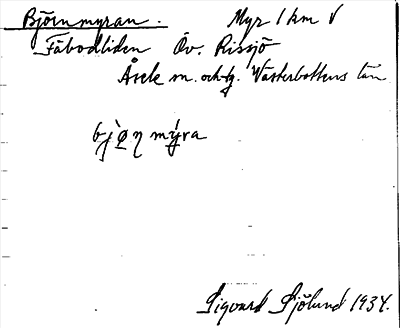 Björnmyran. Myr 1 km V
Fäbodliden Öv. Rissjö
Åsele sn. och tg. Västerbottens län
bjò̤η mýra
Sigvard Sjölund 1934.